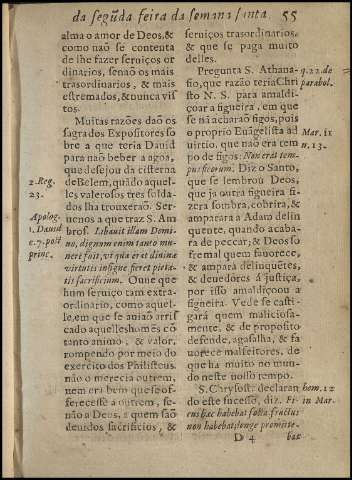 da segũda feira da semana santa 55
alma o amor de Deos, &
como naõ se contenta
de lhe fazer serviços or
dinarios, senaõ os mais
trasordinarios, & mais
estremados, & nunca vis
tos.
Muitas razões daõ os
sagrados Expositores so
bre a que teria Dauid
para naõ beber a agoa,
que desejou da cisterna
2. Reg.
de Belem, quãdo aquel-
23.
les valerosos tres solda-
dos lha trouxeraõ. Ser-
Apolog.
uenos a que traz S. Am
1. Dauid
bros. Libauit illam Domi-
c. 7. post
no, dignum enim tanto mu-
princ.
nere fuit, vt qua erat diuinæ
virtutis insigne fieret pieta-
tis sacrificium. Ouue que
hum serviço tam extra-
ordinario, como aquel-
le, em que se aniaõ arris
cado aquelles homẽs cõ
tanto animo, & valor,
rompendo por meio do
exercito dos Philisteus.
não o merecia outrem,
nem era bem que se of-
ferecesse a outrem, se-
não a Deos, a quem saõ
deuidos sacrificios, &
serviços trasordinarios,
& que se paga muito
delles.
Pergunta S. Athana-
q. 22. de
sio, que razão teria Chri
parabol.
sto N. S. para amaldi-
çoar a figueira, em que
se não acharaõ figos, pois
o proprio Euãgelista ad
Mar. 11
uirtio, que não era tem
n. 13.
po de figos: Non erat tem-
pus ficorum. Diz o Santo,
que se lembrou Deos,
que ja outra figueira fi-
zera sombra, cobrira, &
amparara a Adaõ delin
quente, quando acaba-
ra de peccar; & Deos so
fre mal quem fauorece,
& ampara delinquẽtes,
& deuedores á justiça,
por isso amaldiçoou a
figueira. Vede se casti-
gará quem maliciosa-
mente, & de proposito
defende, agasalha, & fa
uorece malfeitores, de
que ha muito no mun-
do neste nosso tempo.
S. Chrysost. declaran
hom. 12
do este sucesso, diz. Fi-
in Mar.
cus hæc habebat folia fructus
non habebat, longe promisse-
D 4
bat